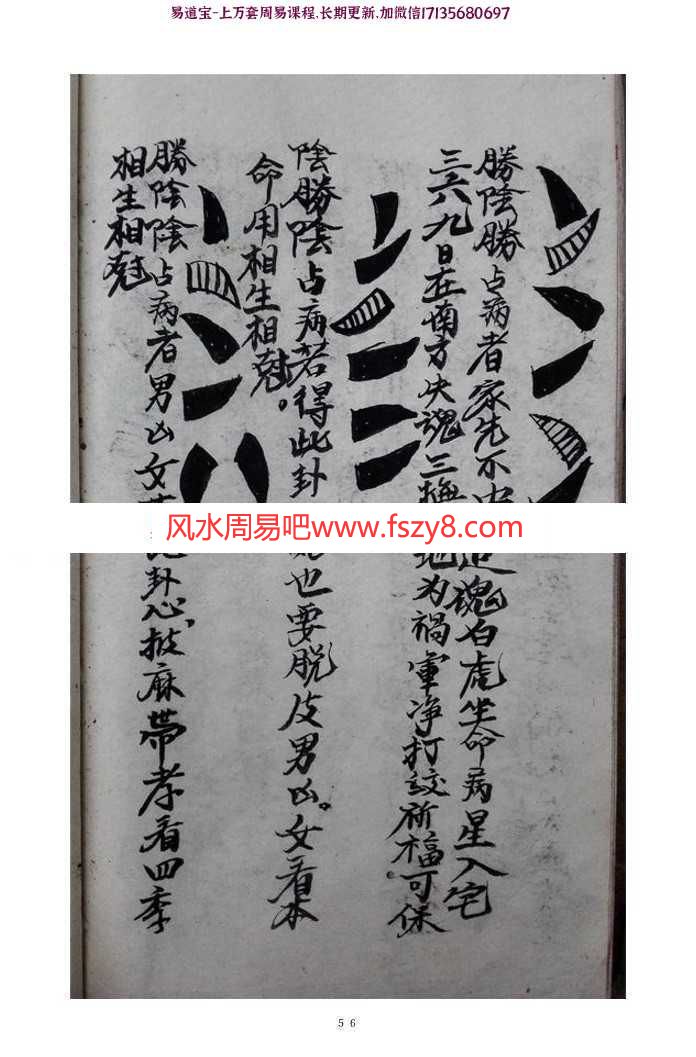 易道宝-上万套周易课程,长期更新,加微信17135680697
勝陰勝占病者家先不 追魂白虎坐命病星入宅
三六九日在南方失魂三 地为禍 净打 祈福可保
陰勝陰占病若得此卦 也要脱皮男凶。女看本
命用相生相尅。
勝陰陰占病者男凶女 卦心披麻带孝看四季
相生相尅
风水周易吧www.fszy8.com
56